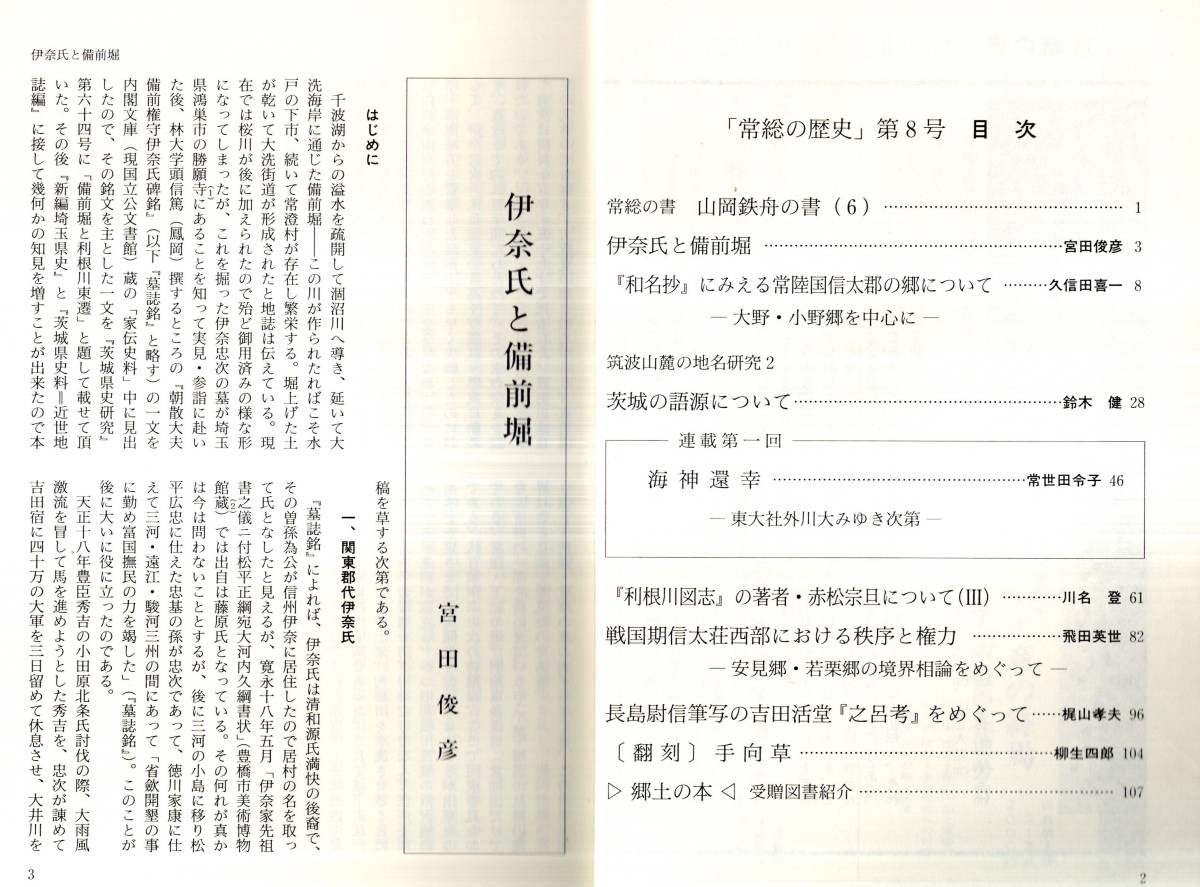 「常総の歴史」第8号 目 次
常総の書 山岡鉄舟の書(6)…………………………………… 1
伊奈氏と備前堀 …………………………………………宮田俊彦 3
『和名抄』にみえる常陸国信太郡の郷について ………久信田喜一 8
― 大野・小野郷を中心に ―
筑波山麓の地名研究2
茨城の語源について……………………………………鈴木 健 28
連載第一回
海神還幸 ……………………………………常世田令子 46
― 東大社外川大みゆき次第 ―
『利根川図志』の著者・赤松宗旦について(III) …………川名 登 61
戦国期信太荘西部における秩序と権力 ………………飛田英世 82
― 安見郷・若栗郷の境界相論をめぐって ―
長島尉信筆写の吉田活堂『之呂考』をめぐって……梶山孝夫 96
〔翻刻〕手向草 ……………………………………柳生四郎 104
▷ 郷土の本 ◁ 受贈図書紹介 …………………………………… 107
2
伊奈氏と備前堀
伊奈氏と備前堀
宮田俊彦
はじめに
千波湖からの溢水を疏開して涸沼川へ導き、延いて大
洗海岸に通じた備前堀――この川が作られたればこそ水
戸の下市、続いて常澄村が存在し繁栄する。堀上げた土
が乾いて大洗街道が形成されたと地誌は伝えている。現
在では桜川が後に加えられたので殆ど御用済みの様な形
になってしまったが、これを掘った伊奈忠次の墓が埼玉
県鴻巣市の勝願寺(1)にあることを知って実見・参詣に赴い
た後、林大学頭信篤(鳳岡)撰するところの『朝散大夫
備前権守伊奈氏碑銘』(以下『墓誌銘』と略す)の一文を
内閣文庫(現国立公文書館)蔵の「家伝史料」中に見出
したので、その銘文を主とした一文を『茨城県史研究』
第六十四号に「備前堀と利根川東遷」と題して載せて頂
いた。その後『新編埼玉県史』と『茨城県史料=近世地
誌編』に接して幾何かの知見を増すことが出来たので本
稿を草する次第である。
一、関東郡代伊奈氏
『墓誌銘』によれば、伊奈氏は清和源氏満快の後裔で、
その曽孫為公が信州伊奈に居住したので居村の名を取っ
て氏となしたと見えるが、寛永十八年五月「伊奈家先祖
書之儀ニ付松平正綱宛大河内久綱書状」(豊橋市美術博物
館蔵)(2)では出自は藤原氏となっている。その何れが真か
は今は問わないこととするが、後に三河の小島に移り松
平広忠に仕えた忠基の孫が忠次であって、徳川家康に仕
えて三河・遠江・駿河三州の間にあって「省斂開墾の事
に勤め富国撫民の力を竭した」(『墓誌銘』)。このことが
後に大いに役に立ったのである。
天正十八年豊臣秀吉の小田原北条氏討伐の際、大雨風
激流を冒して馬を進めようとした秀吉を、忠次が諌めて
吉田宿に四十万の大軍を三日留めて休息させ、大井川を
3